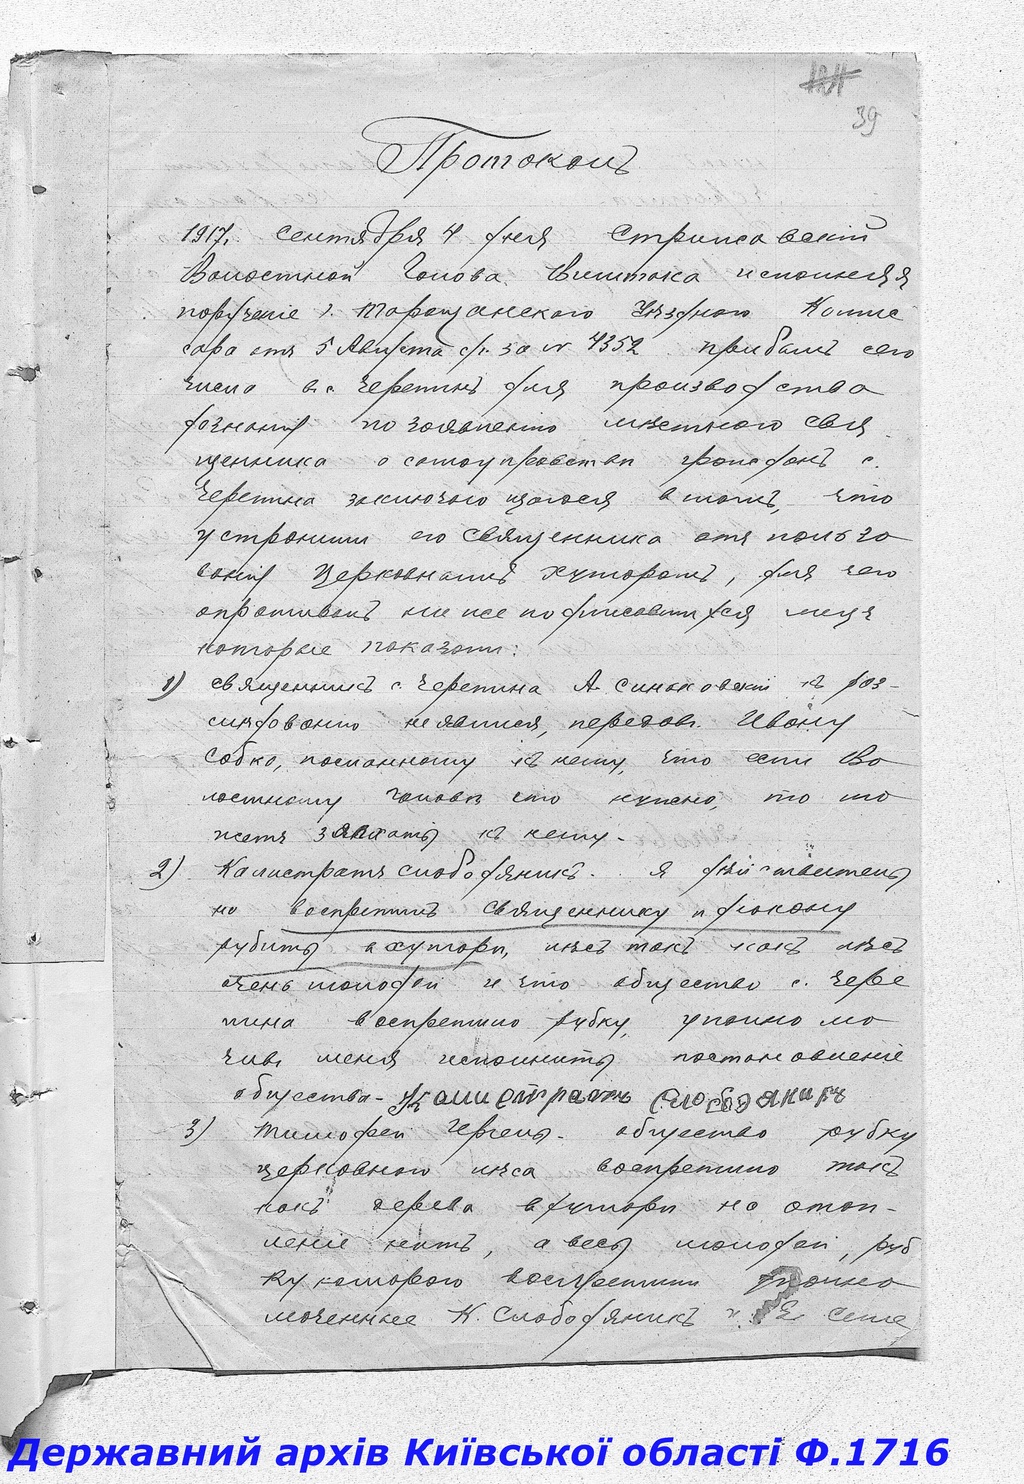 39
Протоколъ
1917. Сентября 4 дня Стрижавскій
Волостной Голова Виттока исполняя
порученіе г. Таращанскаго Уѣзднаго Комис
сара отъ 5 Августа с/г. за № 4352 прибылъ сего
числа въ с. Черепинъ для производства
дознанія по заявленію мѣстнаго свя
щенника о самоуправствѣ граждан с.
Черепина заключающагося в томъ, что
устранили его священника отъ пользо
ванія церковнымъ хуторомъ, для чего
опрашивалъ ниже подписавшихся лицъ
которые показали:
1) священникъ с. Черепина А. Синьковскій къ раз-
слѣдованію не явился, передав. Ивану
Собко, посланному къ нему, что если Во
лостному Головѣ что нужно, то мо
жетъ заѣхать къ нему.
2) Калистратъ Слободяникъ. я дѣйствитель
но воспретилъ священнику и дьякону
рубить в хуторѣ, лѣсъ такъ какъ лѣсъ
очень молодой и что общество с. Чере
пина воспретило рубку, уполно мо
чивъ меня исполнить постановленіе
общества - Калистратъ Слободяникъ
3) Тимофей Гергель. общество рубку
церковнаго лѣса воспретило такъ
какъ дерева в хуторѣ на отоп-
леніе нѣтъ, а весь молодой, руб
ку котораго воспретили уполно
моченные К. Слободяникъ и Е. Семе
Державний архів Київської області Ф.1716